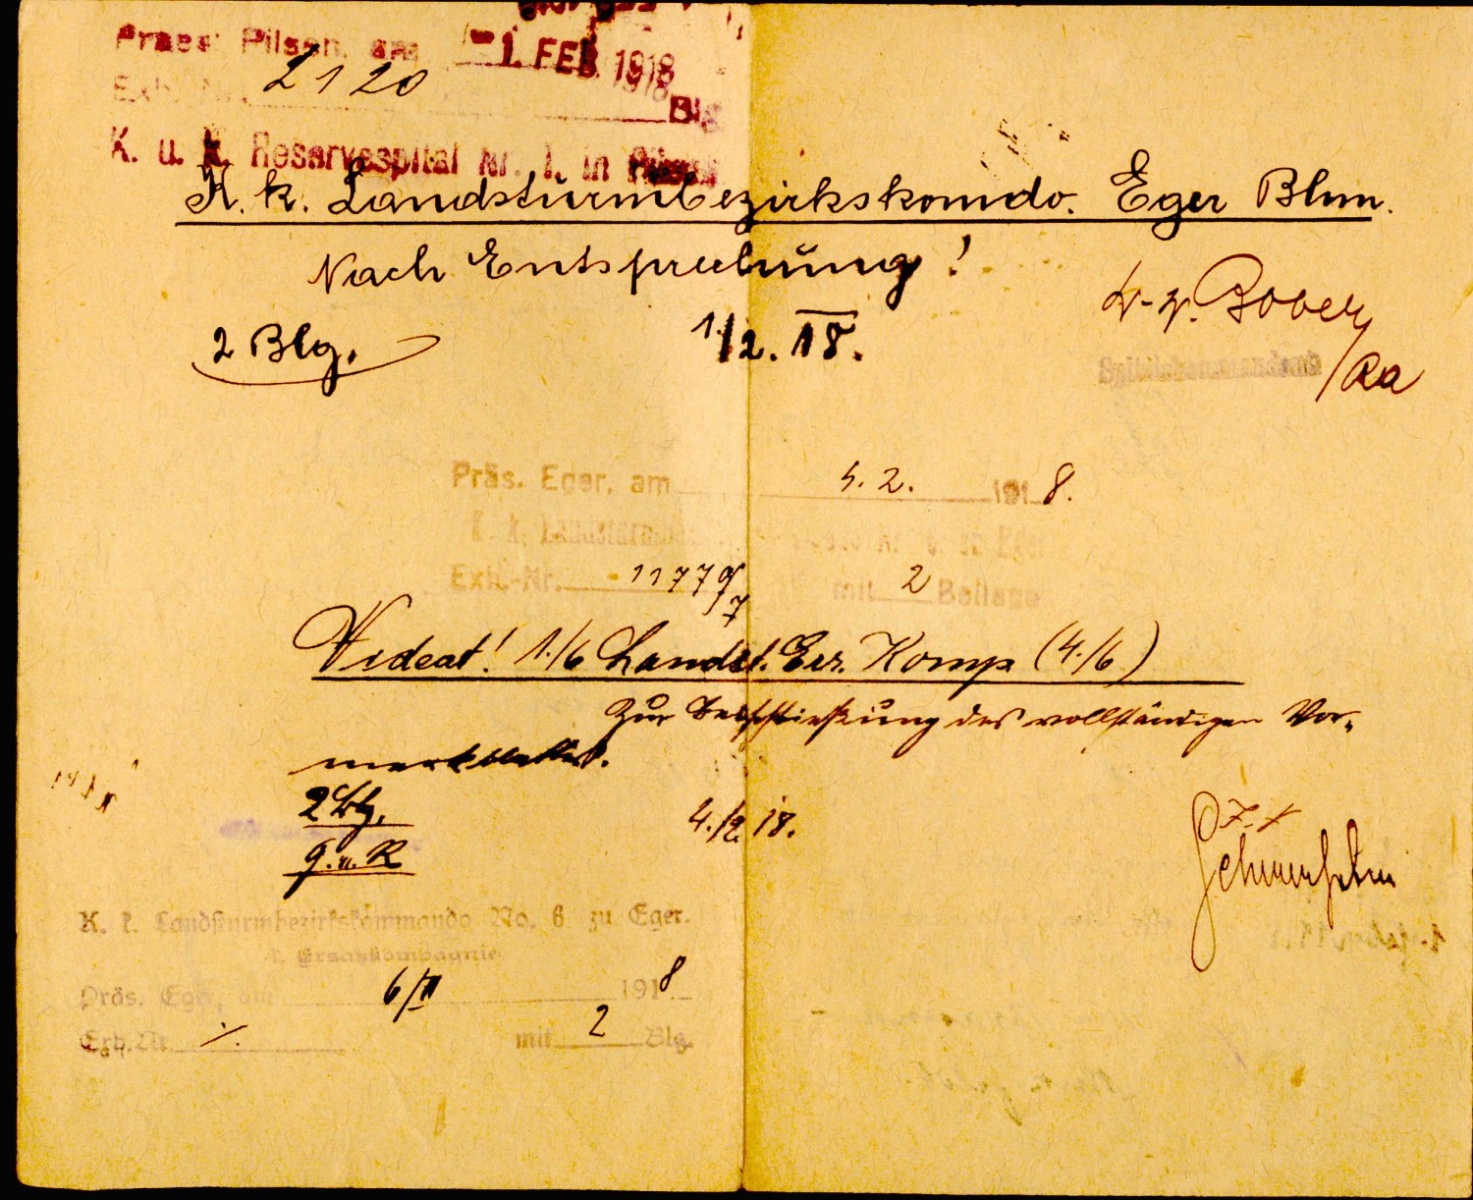 Praes. Pilsen, am 1. FEB. 1918
Exh. Nr. 2120 Blg
K. u. k. Reservespital Nr. 1. in Pilsen
K. k. Landsturmbezirkskomdo. Eger Bhm.
Nach Entsprechung!
2 Blg. 1./2. 18.
/Ra
Präs. Eger, am 4. 2. 1918.
K. k. Landsturmbezirkskommando Nr. 6. zu Eger
Exh.-Nr. 11779/7 mit 2 Beilage
Videat! 1./6 Landst. Ers. Komp (4./6)
Zur des vollständigen Vor-
merkblattes.
2 Blg. 4./2. 18.
K. k. Landsturmbezirkskommando No. 6 zu Eger.
1. Ersatzkompagnie
Präs. Eger, am 6/II 1918.
Exh. Nr. ./. mit 2 Blg.